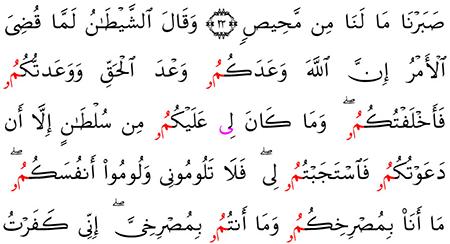 صَبَرْنَا مَا لَنَا مِن مَّحِيصٍ ٢٣ وَقَالَ ٱلشَّيْطَـٰنُ لَمَّا قُضِىَ
ٱلْأَمْرُ إِنَّ ٱللَّهَ وَعَدَكُمُۥ وَعْدَ ٱلْحَقِّ وَوَعَدتُّكُمُۥ
فَأَخْلَفْتُكُمُۥ ۖ وَمَا كَانَ لِى عَلَيْكُمُۥ مِن سُلْطَـٰنٍ إِلَّا أَن
دَعَوْتُكُمُۥ فَٱسْتَجَبْتُمُۥ لِى ۖ فَلَا تَلُومُونِى وَلُومُوا۟ أَنفُسَكُمُۥ ۖ
مَا أَنَا۠ بِمُصْرِخِكُمُۥ وَمَا أَنتُمُۥ بِمُصْرِخِىَّ ۖ إِنِّى كَفَرْتُ